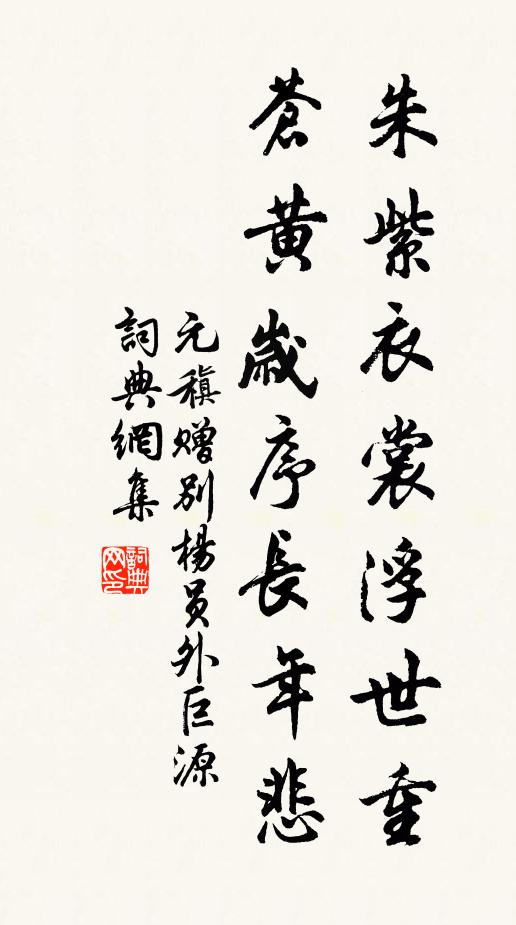 朱紫衣裳浮世重
蒼黃歲序長年悲
元稹贈別楊員外巨源
詞典網集
詞典网印